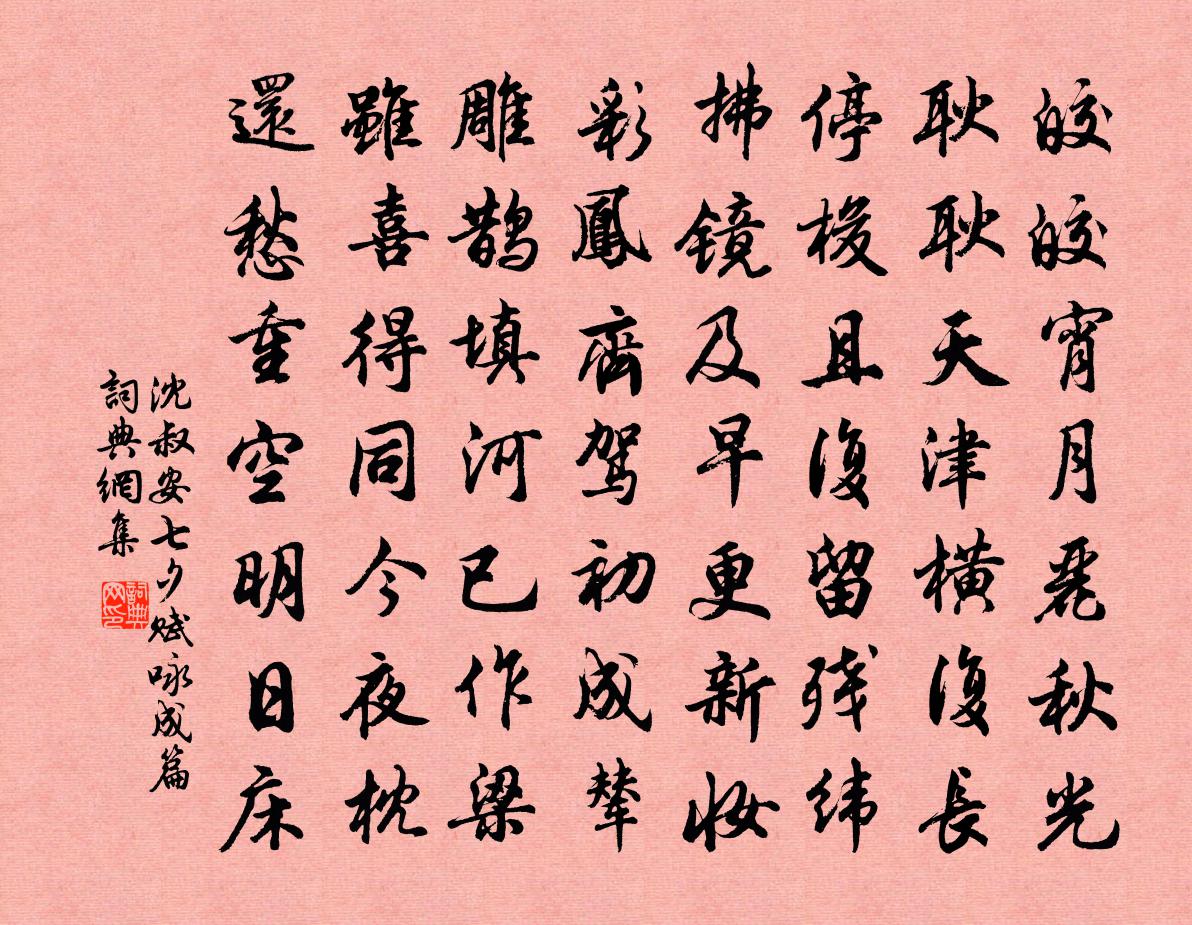 皎皎宵月麗秋光
耿耿天津橫復長
停梭且復留残緯
拂镜及早更新妝
彩鳳齊駕初成輦
雕鹊填河已作梁
雖喜得同今夜枕
還愁重空明日床
沈叔安七夕賦咏成篇
詞典網集
詞典网印